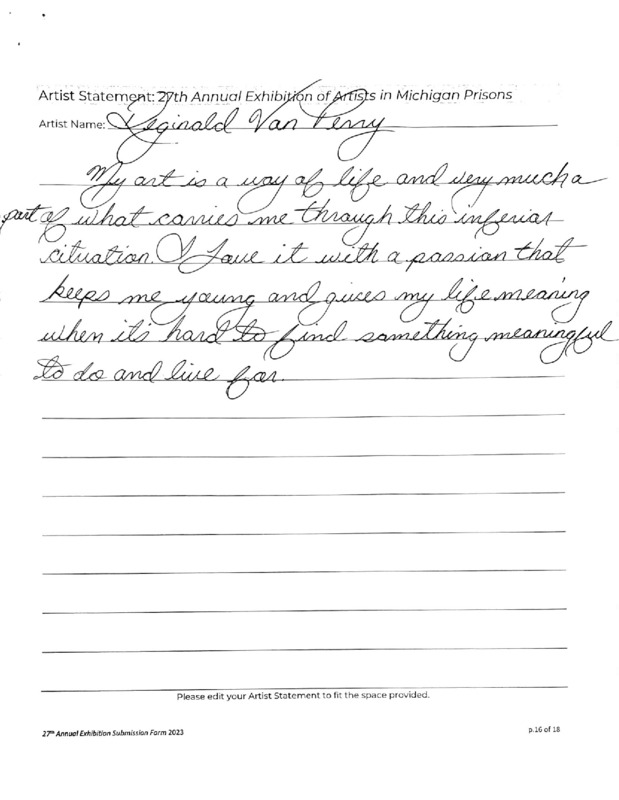 Artist Statement: 27th Annual Exhibition of Artists in Michigan Prisons
Artist Name: Reginald Van Perry
My art is a way of life and very much a
part of what carries me through this inferior
cituation. I Love it with a passion that
keeps me young and gives my life meaning
when it's hard to find something meaningful
to do and live for.
Please edit your Artist Statement to fit the space provided.
27th Annual Exhibition Submission Form 2023
p.16 of 18